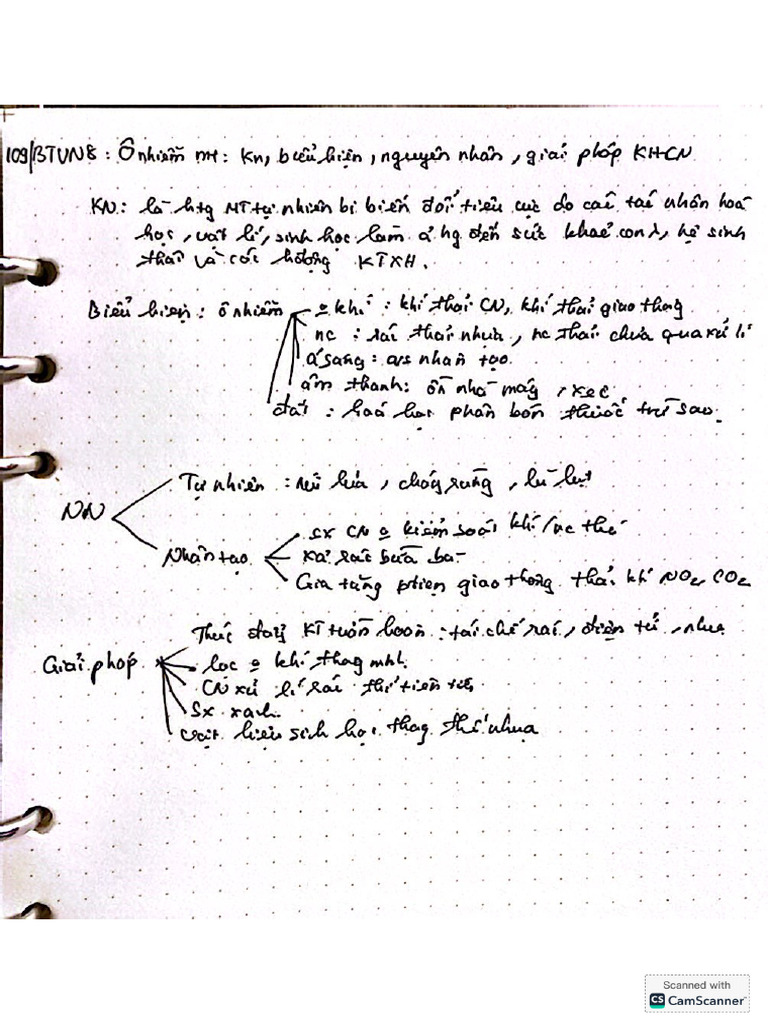 109/BTVN8 : Ô nhiễm mt : Kn, biểu hiện, nguyên nhân, giải pháp KHCN
KN : là htg MT tự nhiên bị biến đổi tiêu cực do các tác nhân hoá
học, vật lí, sinh học làm ả hg đến sức khoẻ con , hệ sinh
thái và các KTXH.
Biểu hiện : ô nhiễm khí : khí thải CN, khí thải giao thông
nc : rác thải nhựa, nc thải chưa qua xử lí
á sáng : a/s nhân tạo.
âm thanh : ồn nhà máy, xe
đất : hoá học phân bón thuốc trừ sâu.
NN
Tự nhiên : núi lửa, cháy rừng, lũ lụt
Nhân tạo
sx CN kiểm soát khí/nc thải
xả rác bừa bãi
Gia tăng ptiện giao thông thải khí NO2, CO2
Giải pháp
Thúc đẩy KT tuần hoàn : tái chế rác, điện tử, nhựa
lọc khí thông mh.
CN xử lí rác thải tiên tiến
Sx xanh.
vật liệu sinh học thay thế nhựa
Scanned with
CS CamScanner